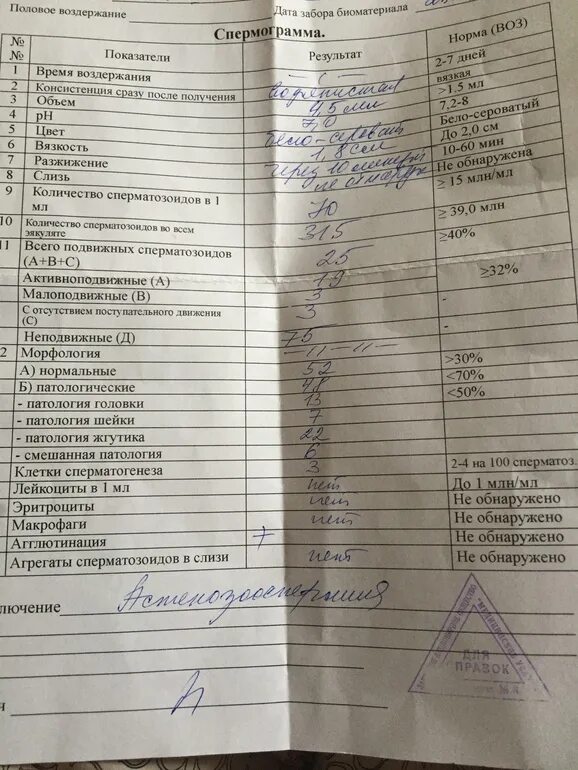 Половое воздержание
Дата забора биоматериала
Спермограмма.
№ № Показатели Результат Норма (ВОЗ)
1 Время воздержания 2-7 дней
2 Консистенция сразу после получения водянистая вязкая
3 Объем 4,5 мл >1.5 мл
4 рН 7,0 7,2-8
5 Цвет бело-сероват Бело-сероватый
6 Вязкость 1,8 см До 2,0 см
7 Разжижение через 10 минут 10-60 мин
8 Слизь не обнаруж Не обнаружена
9 Количество сперматозоидов в 1 мл 70 ≥ 15 млн/мл
10 Количество сперматозоидов во всем эякуляте 315 ≥ 39,0 млн
11 Всего подвижных сперматозоидов (А+В+С) 25 ≥40%
Активноподвижные (А) 19 ≥32%
Малоподвижные (В) 3
С отсутствием поступательного движения (С) 3 -
Неподвижные (Д) 75 -
2 Морфология — 11 — 11 —
А) нормальные 52 >30%
Б) патологические 48 <70%
- патология головки 13 <50%
- патология шейки 7
- патология жгутика 22
- смешанная патология 6
Клетки сперматогенеза 3 2-4 на 100 сперматоз
Лейкоциты в 1 мл нет До 1 млн/мл
Эритроциты нет Не обнаружено
Макрофаги нет Не обнаружено
Агглютинация + Не обнаружено
Агрегаты сперматозоидов в слизи нет Не обнаружено
лючение Астенозооспермия
ДЛЯ
ПРАВОК